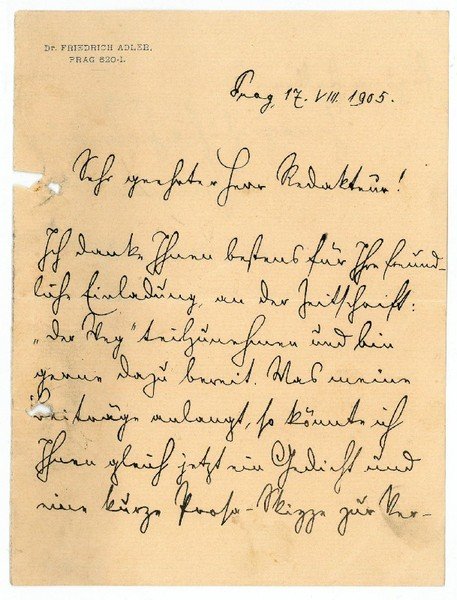 Dr. FRIEDRICH ADLER.
PRAG 820-I.
Prag, 17. VIII. 1905.
Sehr geehrter Herr Redakteur!
Ich danke Ihnen bestens für Ihre freund-
liche Einladung, an der Zeitschrift:
„Der Weg" teilzunehmen und bin
gerne dazu bereit. Was meine
Beiträge anlangt, so könnte ich
Ihnen gleich jetzt ein Gedicht und
eine kurze Prosa-Skizze zur Ver-